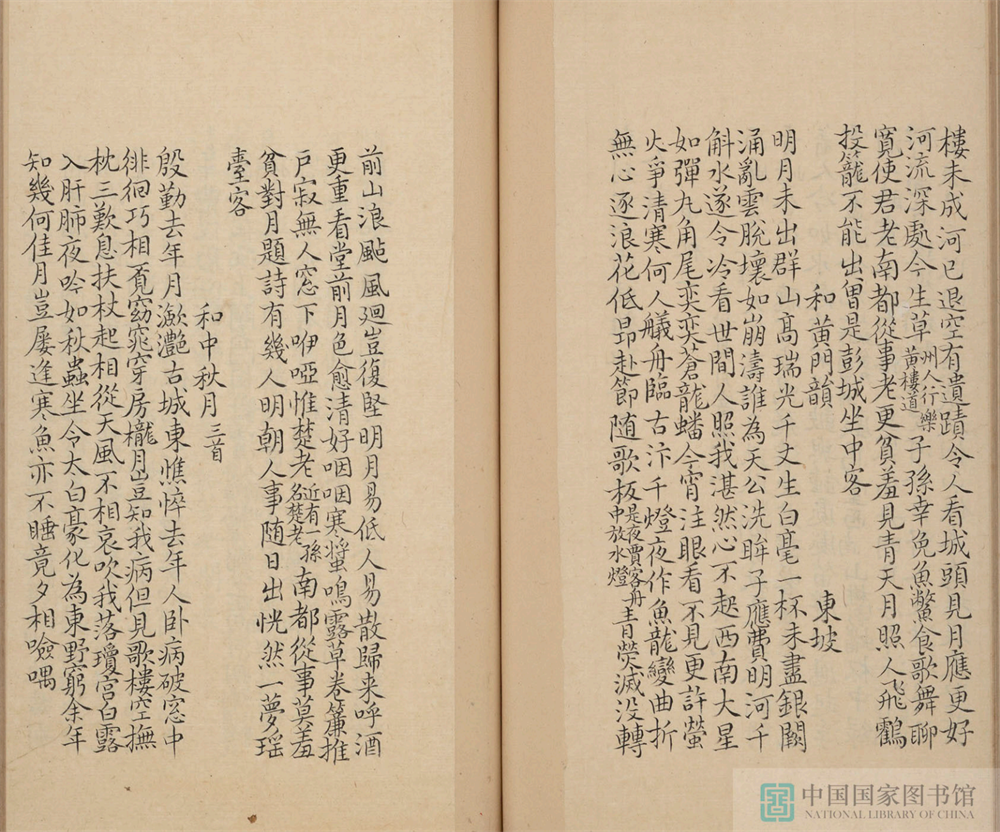 樓未成河已退空有遺蹟令人看城頭見月應更好
河流深處今生草州人行樂黃樓道子孫幸免魚鱉食歌舞聊
寬使君老南都從事老更貧羞見青天月照人飛鶴
投籠不能出曾是彭城坐中客
和黃門韻 東坡
明月未出群山高瑞光千丈生白毫一杯未盡銀闕
涌亂雲脫壞如崩濤誰為天公洗眸子應費明河千
斛水遂令冷看世間人照我湛然心不起西南大星
如彈丸角尾奕奕蒼龍蟠今宵注眼看不見更許螢
火爭清寒何人艤舟臨古汴千燈夜作魚龍變曲折
無心逐浪花低昂赴節隨歌板是夜賈客舟中放水燈青熒滅沒轉
前山浪颭風迴豈復堅明月易低人易散歸来呼酒
更重看堂前月色愈清好咽咽寒螿鳴露草卷簾推
戶寂無人窓下咿啞惟楚老近有一孫名楚老南都從事莫羞
貧對月題詩有幾人明朝人事随日出恍然一夢瑶
臺客
和中秋月三首
殷勤去年月瀲灔古城東憔悴去年人卧病破窓中
徘徊巧相覓窈窕穿房櫳月豈知我病但見歌樓空撫
枕三歎息扶杖起相從天風不相哀吹我落瓊宮白露
入肝肺夜吟如秋蟲坐令太白豪化為東野窮余年
知幾何佳月豈屢逢寒魚亦不睡竟夕相噞喁
中国国家图书馆
NATIONAL LIBRARY OF CHINA